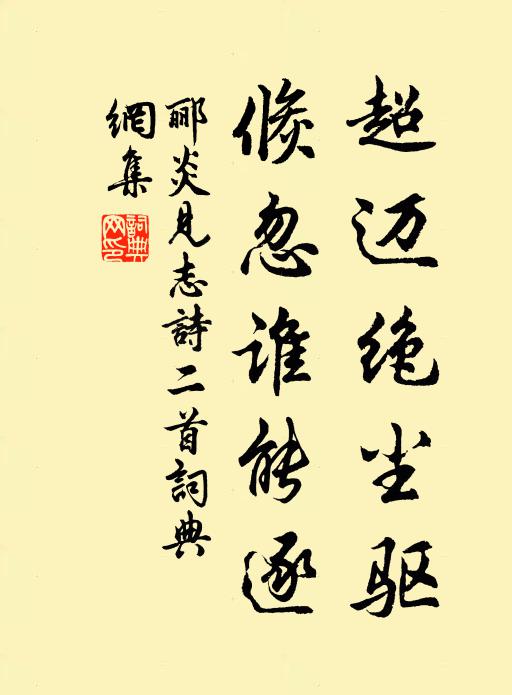 超迈绝尘驱
倏忽谁能逐
郦炎见志詩二首詞典
網集
詞典網印